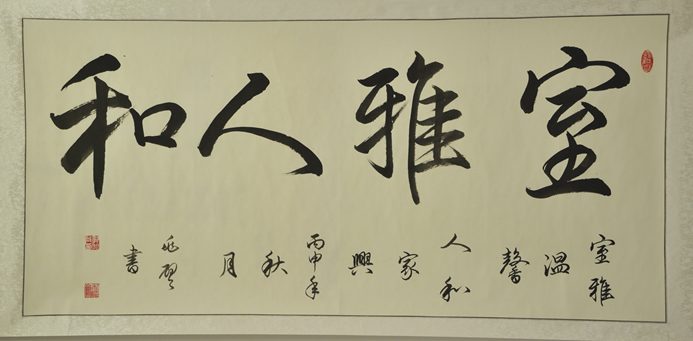 室雅人和
室雅
温
馨
人和
家
興
丙申年
秋
月
書